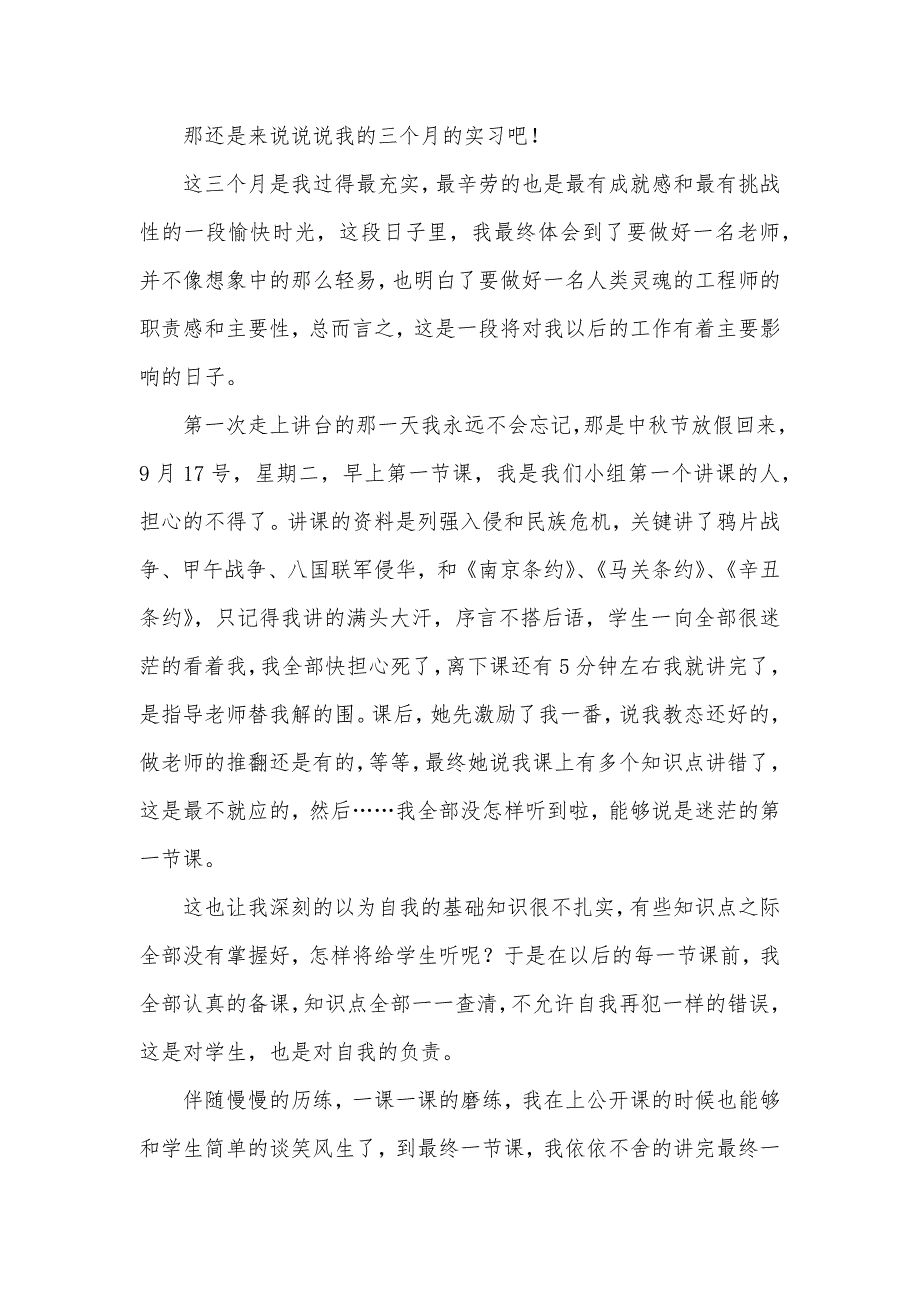 那还是来说说说我的三个月的实习吧！
这三个月是我过得最充实，最辛劳的也是最有成就感和最有挑战
性的一段愉快时光，这段日子里，我最终体会到了要做好一名老师，
并不像想象中的那么轻易，也明白了要做好一名人类灵魂的工程师的
职责感和主要性，总而言之，这是一段将对我以后的工作有着主要影
响的日子。
第一次走上讲台的那一天我永远不会忘记，那是中秋节放假回来，
9 月 17 号，星期二，早上第一节课，我是我们小组第一个讲课的人，
担心的不得了。讲课的资料是列强入侵和民族危机，关键讲了鸦片战
争、甲午战争、八国联军侵华，和《南京条约》、《马关条约》、《辛丑
条约》，只记得我讲的满头大汗，序言不搭后语，学生一向全部很迷
茫的看着我，我全部快担心死了，离下课还有 5 分钟左右我就讲完了，
是指导老师替我解的围。课后，她先激励了我一番，说我教态还好的，
做老师的推翻还是有的，等等，最终她说我课上有多个知识点讲错了，
这是最不就应的，然后……我全部没怎样听到啦，能够说是迷茫的第
一节课。
这也让我深刻的以为自我的基础知识很不扎实，有些知识点之际
全部没有掌握好，怎样将给学生听呢？于是在以后的每一节课前，我
全部认真的备课，知识点全部一一查清，不允许自我再犯一样的错误，
这是对学生，也是对自我的负责。
伴随慢慢的历练，一课一课的磨练，我在上公开课的时候也能够
和学生简单的谈笑风生了，到最终一节课，我依依不舍的讲完最终一